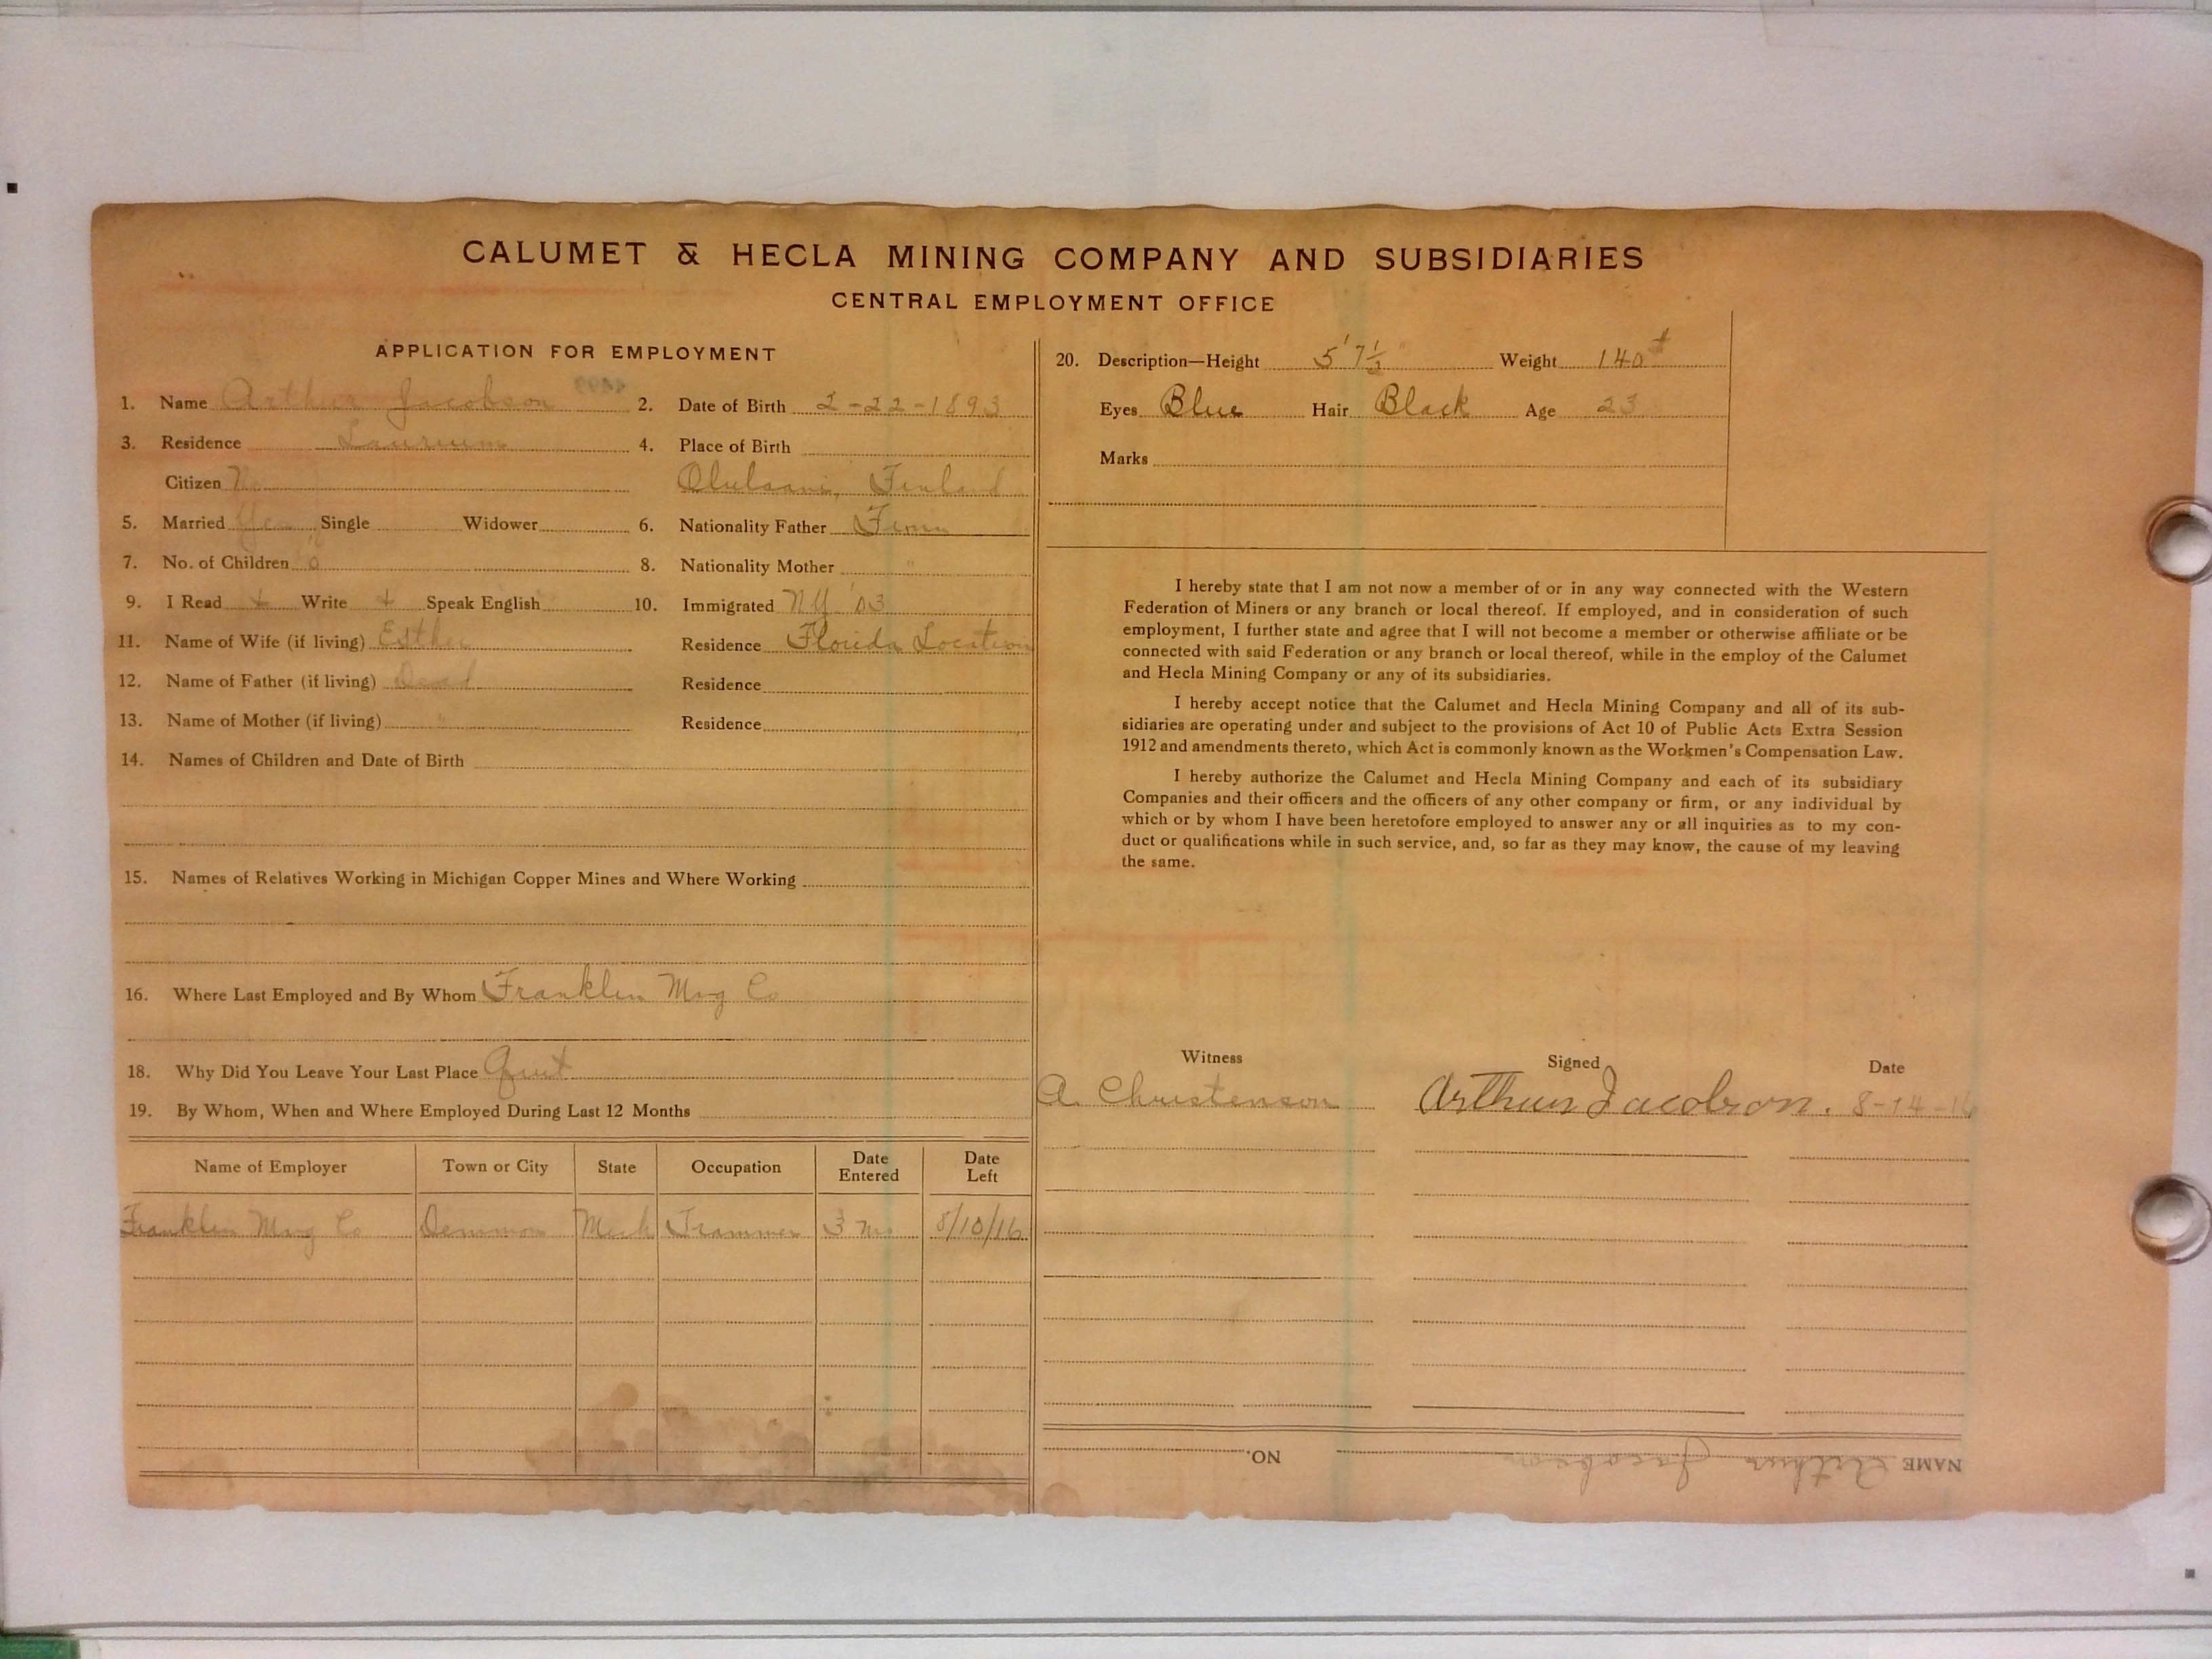 CALUMET & HECLA MINING COMPANY AND SUBSIDIARIES
CENTRAL EMPLOYMENT OFFICE
APPLICATION FOR EMPLOYMENT
1. Name Arthur Jacobson
2. Date of Birth 2-22-1893
3. Residence Laurium
4. Place of Birth
Citizen No
Finland
5. Married Yes Single Widower
6. Nationality Father Finn
7. No. of Children 0
8. Nationality Mother "
9. I Read + Write + Speak English
10. Immigrated NY '03
11. Name of Wife (if living) Esther
Residence Florida Location
12. Name of Father (if living) Dead
Residence
13. Name of Mother (if living) "
Residence
14. Names of Children and Date of Birth
15. Names of Relatives Working in Michigan Copper Mines and Where Working
16. Where Last Employed and By Whom Franklin Mng Co
18. Why Did You Leave Your Last Place Quit
19. By Whom, When and Where Employed During Last 12 Months
Name of Employer Town or City State Occupation Date Entered Date Left
Franklin Mng Co Demmon Mich Trammer 3 mo 8/10/16
20. Description—Height 5' 7½" Weight 140#
Eyes Blue Hair Black Age 23
Marks
I hereby state that I am not now a member of or in any way connected with the Western
Federation of Miners or any branch or local thereof. If employed, and in consideration of such
employment, I further state and agree that I will not become a member or otherwise affiliate or be
connected with said Federation or any branch or local thereof, while in the employ of the Calumet
and Hecla Mining Company or any of its subsidiaries.
I hereby accept notice that the Calumet and Hecla Mining Company and all of its sub-
sidiaries are operating under and subject to the provisions of Act 10 of Public Acts Extra Session
1912 and amendments thereto, which Act is commonly known as the Workmen's Compensation Law.
I hereby authorize the Calumet and Hecla Mining Company and each of its subsidiary
Companies and their officers and the officers of any other company or firm, or any individual by
which or by whom I have been heretofore employed to answer any or all inquiries as to my con-
duct or qualifications while in such service, and, so far as they may know, the cause of my leaving
the same.
Witness Signed Date
A. Christenson Arthur Jacobson. 8-14-16
NAME Arthur Jacobson NO.